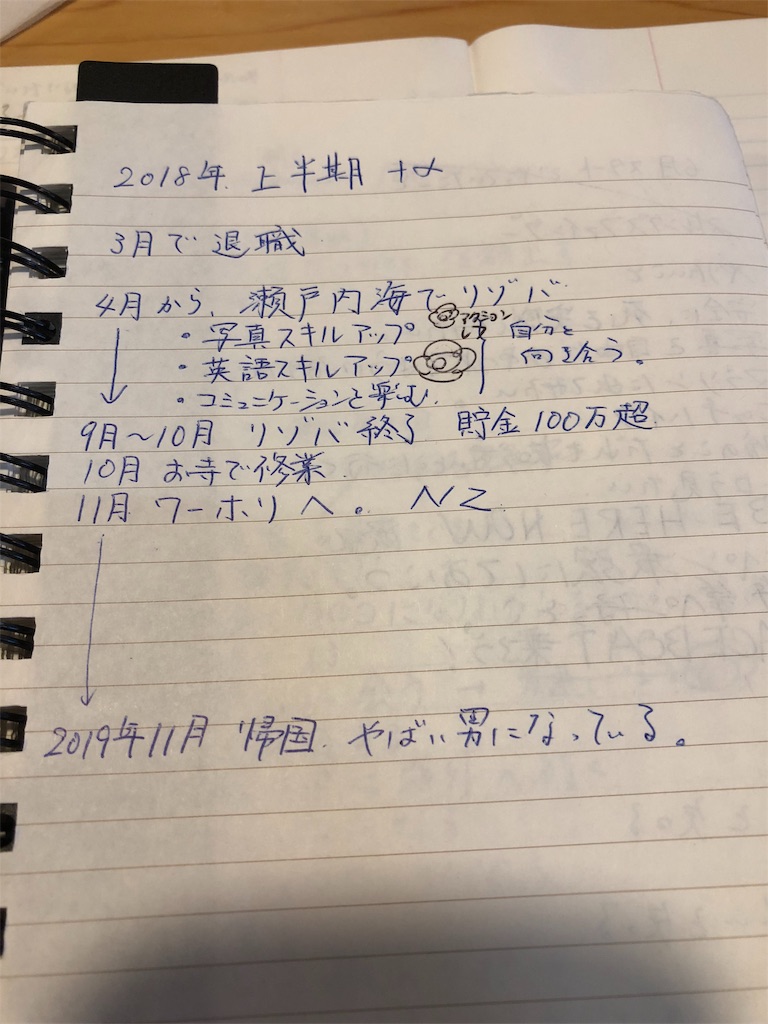 2018年 上半期 +α
3月で退職
4月から、瀬戸内海でリゾバ
・写真スキルアップ
・英語スキルアップ
・コミュニケーションを楽しむ.
アクション
自分と
向き合う。
9月〜10月 リゾバ終了 貯金100万超
10月 お寺で修業
11月 ワーホリへ。NZ
2019年11月 帰国. やばい男になっている。